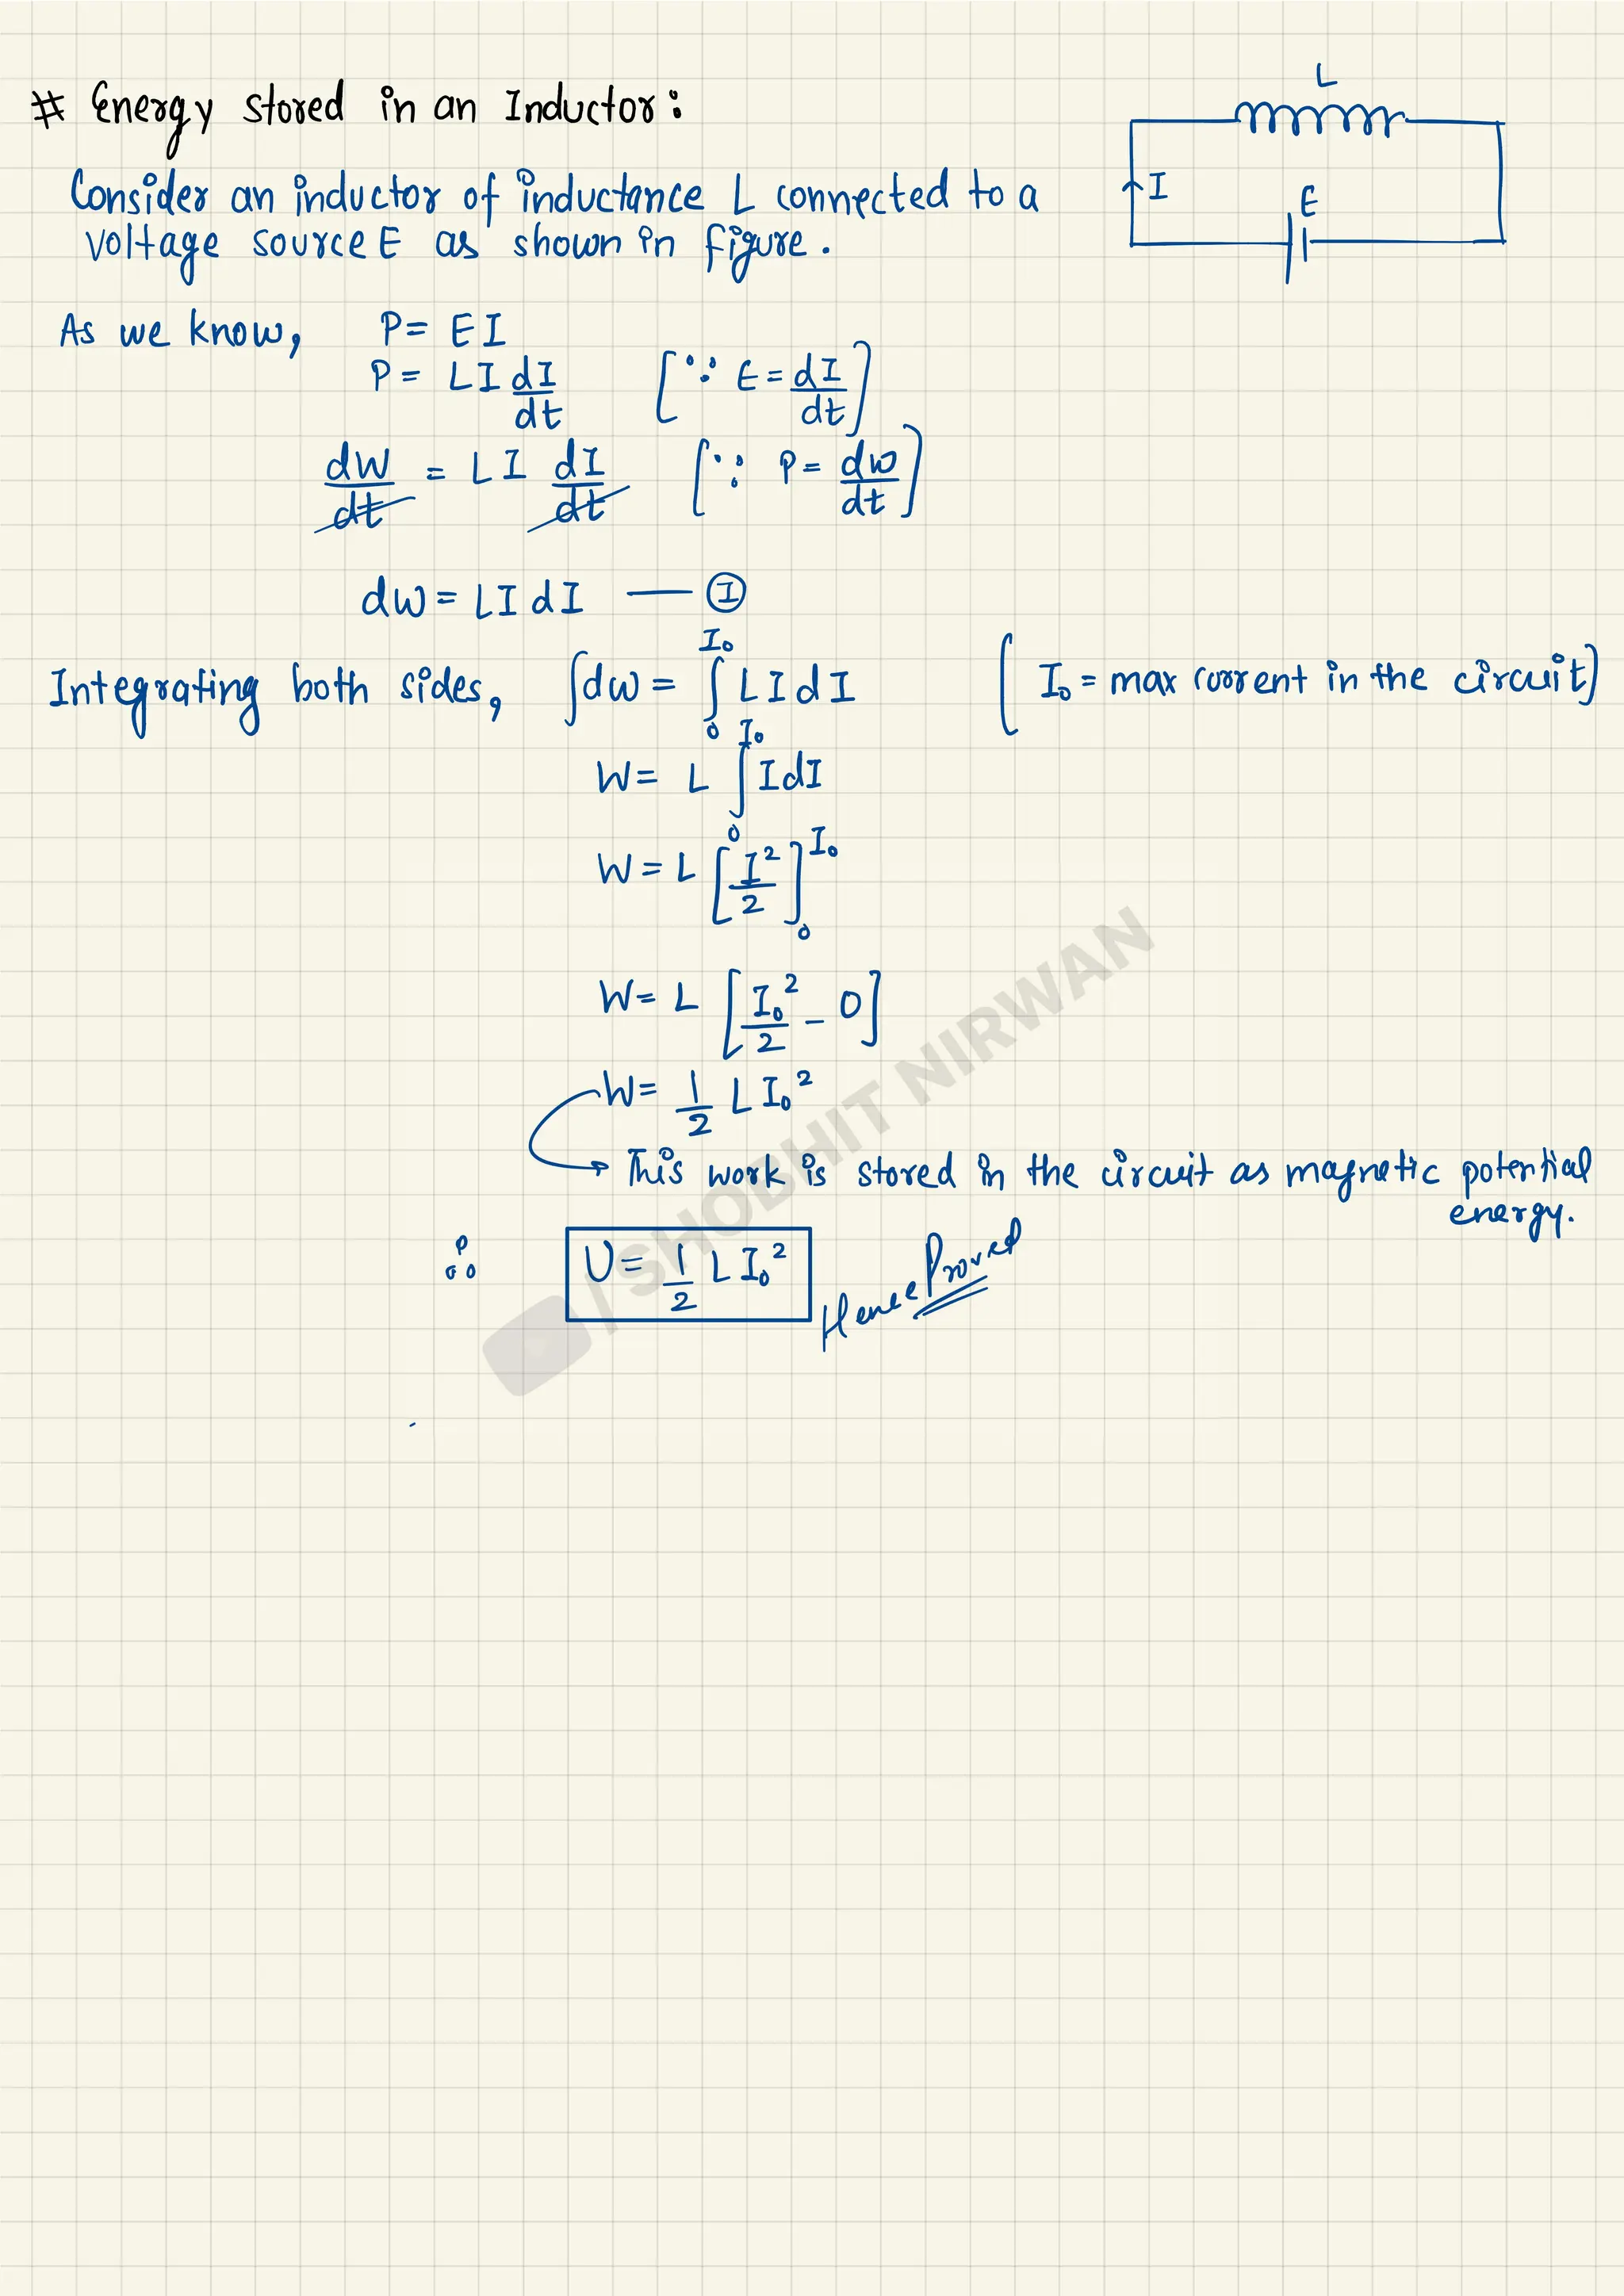 # Energy stored in an Inductor:
L
I
E
Consider an inductor of inductance L connected to a
voltage source E as shown in figure.
As we know, P = EI
P = LI dI/dt [∵ E = dI/dt]
dW/dt = LI dI/dt [∵ P = dw/dt]
dw = LI dI — Ⓘ
Integrating both sides, ∫dw = ∫₀^I₀ LI dI [I₀ = max current in the circuit)
W = L ∫₀^I₀ I dI
W = L [I²/2]₀^I₀
W = L [I₀²/2 - 0]
W = 1/2 L I₀²
→ This work is stored in the circuit as magnetic potential
energy.
∴ U = 1/2 L I₀² Hence Proved
/ SHOBHIT NIRWAN